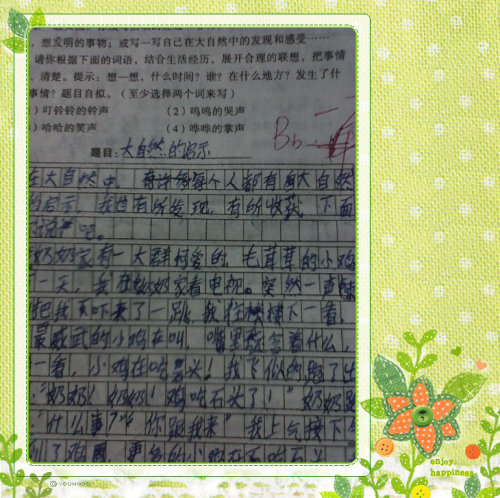 想发明的事物；或写一写自己在大自然中的发现和感受……
请你根据下面的词语，结合生活经历，展开合理的联想，把事情
清楚。提示：想一想，什么时间？谁？在什么地方？发生了什
事？题目自拟。（至少选择两个词来写）
）叮铃铃的铃声 （2）呜呜的哭声
）哈哈的笑声 （4）哗哗的掌声
Bb
题目：大自然的启示
在大自然中，每个人都有自大自然
的启示，我也有所发现，有所收获，下面
说吧。
奶奶家有一大群可爱的，毛茸茸的小鸡
一天，我在奶奶家看电视。突然一直
把我吓来了一跳，我往楼下一看，
最威武的小鸡在叫，嘴里 含着什么，
一看，小鸡在吃石头！我飞似的跑了出
“奶奶！奶奶！鸡吃石头了！”奶奶
“什么事？”“你跟我来”我上气接下
到了鸡圈，
enjoy
happiness